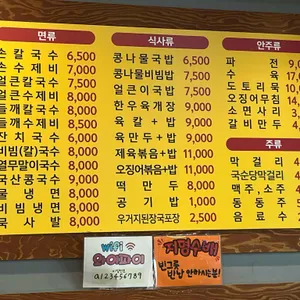 면류
손칼국수 6,500
손수제비 7,000
얼큰칼국수 7,500
얼큰수제비 8,000
들깨칼국수 7,500
들깨수제비 8,000
잔치국수 6,000
비빔(칼)국수 8,000
열무말이국수 9,000
국산콩국수 9,000
물냉면 8,000
비빔냉면 8,000
묵사발 8,000
식사류
콩나물국밥 6,500
콩나물비빔밥 7,500
얼큰이국밥 7,500
한우육개장 9,000
육칼+밥 9,000
육만두+밥 9,000
제육볶음+밥 11,000
오징어볶음+밥 11,000
떡만두 8,000
공기밥 1,000
우거지된장국포장 2,500
안주류
파전
수육
도토리묵
오징어무침
소면사리
갈비만두
주류
막걸리
국순당막걸리
맥주,소주
동동주
음료수
wifi
와이파이
a123456789
지명수배
빈그릇
반납 안하시는분!